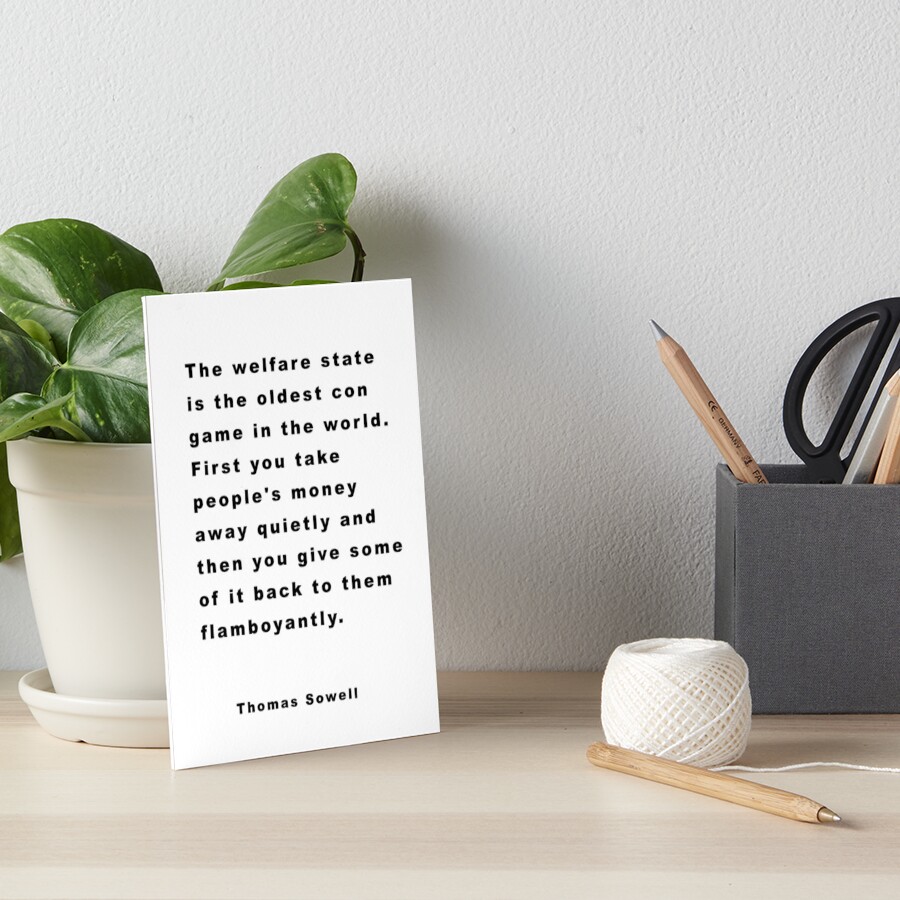 The welfare state
is the oldest con
game in the world.
First you take
people's money
away quietly and
then you give some
of it back to them
flamboyantly.
Thomas Sowell
CE
GERMANY